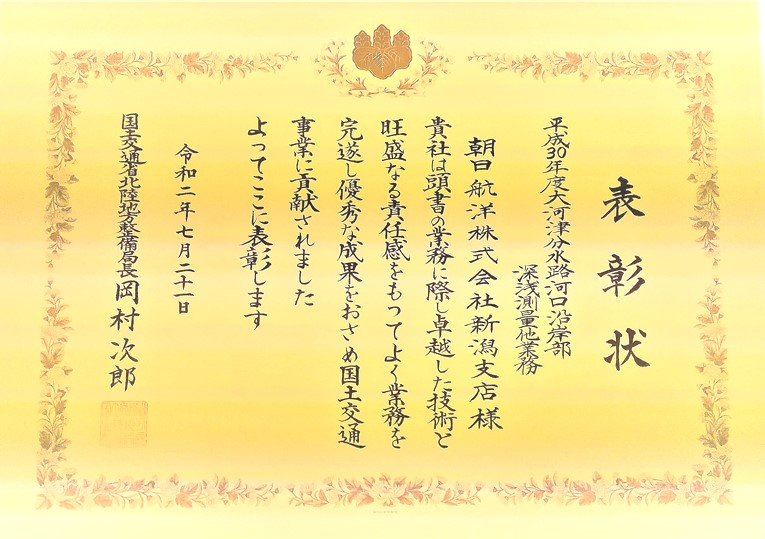 表彰状
平成30年度大河津分水路河口沿岸部
深浅測量他業務
朝日航洋株式会社新潟支店様
貴社は頭書の業務に際し卓越した技術と
旺盛なる責任感をもってよく業務を
完遂し優秀な成果をおさめ国土交通
事業に貢献されました
よってここに表彰します
令和二年七月二十一日
国土交通省北陸地方整備局長岡村次郎